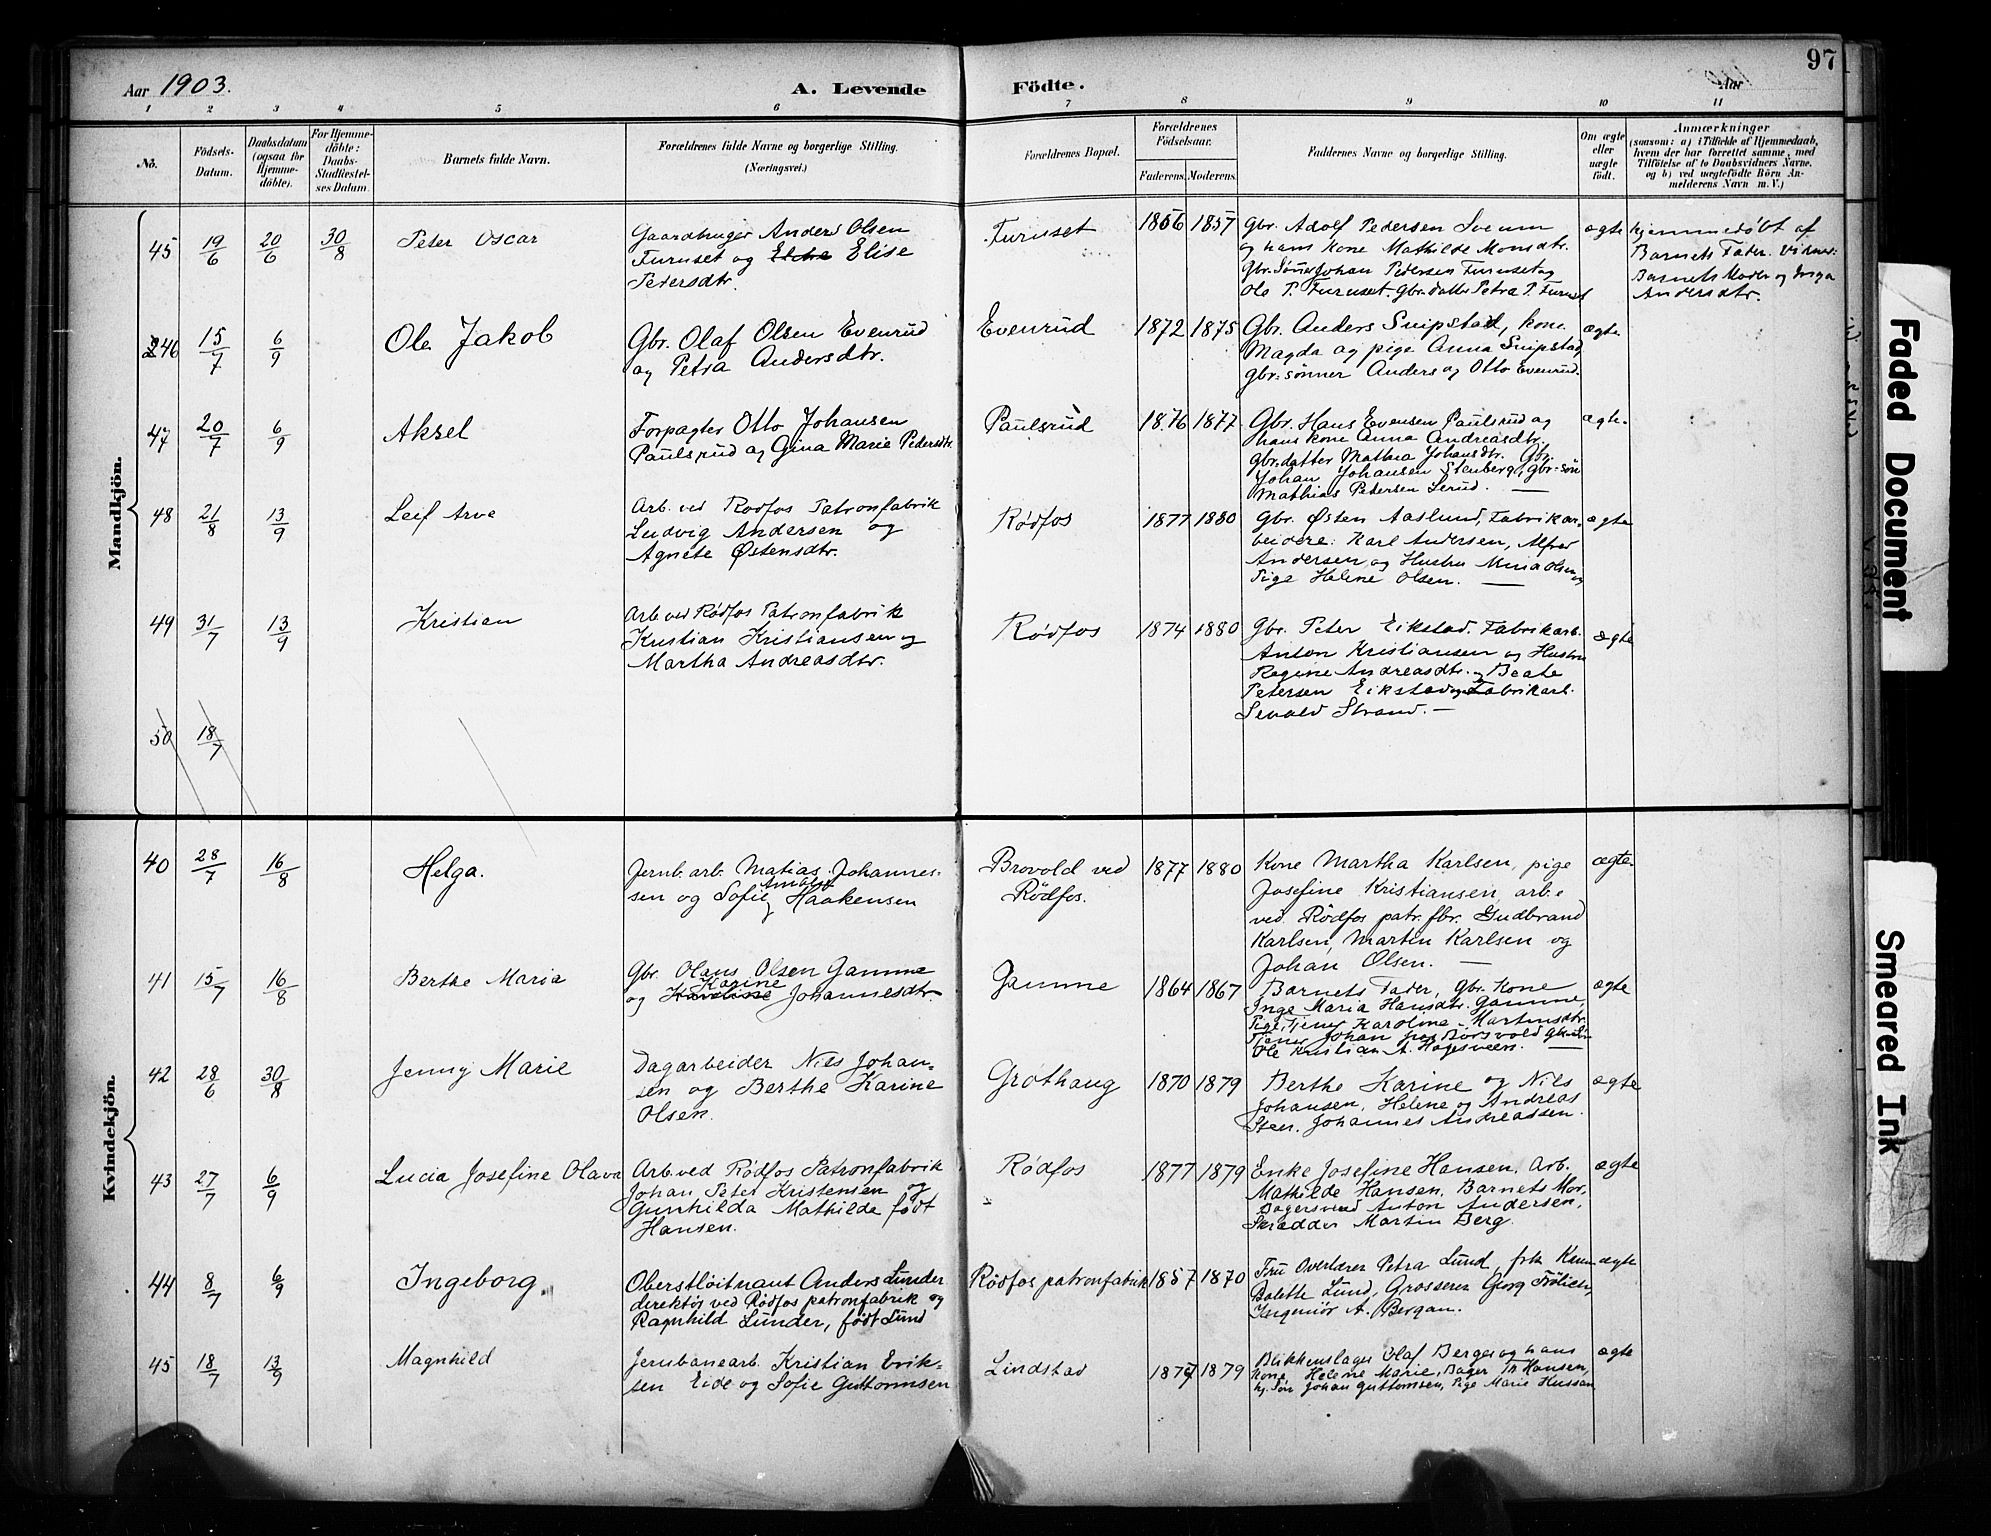 97
Aar 1903.
A. Levende Födte.
Aar
1 2 3 4 5 6 7 8 9 10 11
No.
Födsels-
Datum.
Daabsdatum
(ogsaa for
Hjemme-
döbte).
For Hjemme-
döbte:
Daabs-
Stadfæstel-
ses Datum.
Barnets fulde Navn.
Forældrenes fulde Navne og borgerlige Stilling.
(Næringsvei.)
Forældrenes Bopæl.
Forældrenes
Födselsaar.
Faderens. Moderens.
Faddernes Navne og borgerlige Stilling.
Om ægte
eller
uægte
født.
Anmærkninger
(saasom: a) i Tilfælde af Hjemmedaab,
hvem der har forrettet samme, med
Tilföielse af to Daabsvidners Navne,
og b) ved uægtefödte Börn An-
melderens Navn m. V.)
Mandkjön.
45 19/6 20/6 30/8 Peter Oscar
Gaardbruger Anders Olsen
Furuset og Elise
Pedersdtr.
Furuset 1856 1857
Gbr. Adolf Pedersen Sveum
og hans kone Mathilde Monsdtr.
Gbr. Sønner Johan Pedersen Furuset og
Ole P. Furuset. Gbr. datter Petra P. Furuset
ægte
hjemmedøbt af
Barnets Fader. Vidner:
Barnets Moder og Inga
Andersdtr.
46 15/7 6/9 Ole Jakob
Gbr. Olaf Olsen Evenrud
og Petra Andersdtr.
Evenrud 1872 1875
Gbr. Anders Snipstad, kone
Magda og pige Anna Snipstad,
gbr: sønner Anders og Otto Evenrud.
ægte
47 20/7 6/9 Aksel
Forpagter Otto Johansen
Paulsrud og Gina Marie Pedersdtr.
Paulsrud 1876 1877
Gbr. Hans Evensen Paulsrud og
hans kone Anna Andreasdtr.
Gbr. datter Mathea Johansdtr. Gbr.
Johan Johansen Stenberg, gbr-søn
Mathias Petersen Lerud.
ægte.
48 21/8 13/9 Leif Arve
Arb. ved Rødfos Patronfabrik
Ludvig Andersen og
Agnete Østensdtr.
Rødfos 1877 1880
Gbr. Østen Aaslund, Fabrikar-
beidere: Karl Andersen, Alfred
Andersen og Hustru Mina Olsen og
Pige Helene Olsen.
ægte
49 31/7 13/9 Kristian
Arb ved Rødfos Patronfabrik
Kristian Kristiansen og
Martha Andreasdtr.
Rødfos 1874 1880
Gbr. Peter Eikstad. Fabrikarb.
Anton Kristiansen og Hustru
Regine Andreasdtr. og Beate
Petersen Eikstad og Fabrikarb.
Sevald Strand.
ægte
50 18/7
Kvindekjön.
40 28/7 16/8 Helga.
Jernb. arb. Matias Johannes-
sen og Sofie Amalie Haakensen
Brovold ved
Rødfos. 1877 1880
Kone Martha Karlsen, pige
Josefine Kristiansen, arb.e
ved Rødfos patr. fbr. Gudbrand
Karlsen, Martin Karlsen og
Johan Olsen.
ægte
41 15/7 16/8 Berthe Maria
Gbr. Olaus Olsen Gamme
og Kagine Johannesdtr.
Gamme 1864 1867
Barnets Fader, Gbr. Kone
Inge Maria Hansdtr. Gamme,
Pige, Tiener Karoline Martinsdtr.
Tiener Johan Børsvold
Ole Kristian A. Hagesveen.
ægte
42 28/6 30/8 Jenny Marie
Dagarbeider Nils Johan-
sen og Berthe Karine
Olsen.
Grøthaug 1870 1879
Berthe Karine og Nils
Johansen, Helene og Andreas
Steen. Johannes Andreassen.
ægte
43 27/7 6/9 Lucia Josefine Olava
Arb. ved Rødfos Patronfabrik
Johan Peter Kristensen og
Gunhilda Mathilde født
Hansen.
Rødfos 1877 1879
Enke Josefine Hansen. Arb.
Mathilde Hansen, Barnets Mor,
Bagersvend Anton Andersen,
Skrædder Martin Berg.
ægte
44 8/7 6/9 Ingeborg
Oberstløitnant Anders Lunder
direktør ved Rødfos patronfabrik og
Ragnhild Lunder, født Lund
Rødfos patronfabrik 1857 1870
Fru Overlærer Petra Lund, frk.
Bolette Lund, Grosserer Georg Frölich,
Ingeniør A. Bergan.
ægte
45 18/7 13/9 Magnhild
Jernbanearb. Kristian Erik-
sen Eide og Sofie Guttormsen
Lindstad 1879 1879
Blikkenslager Olaf Berge og hans
kone Helene Marie, Bager Th Hansen,
Johan Guttormsen, Pige Marie Hussan
ægte
Faded Document
Smeared Ink